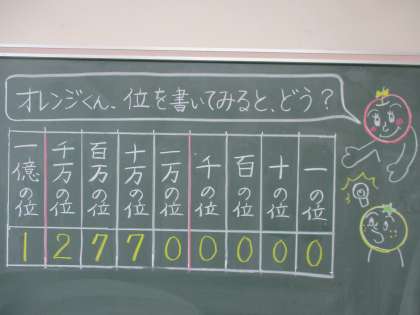 オレンジくん、位を書いてみると、どう？
一億の位 千万の位 百万の位 十万の位 一万の位 千の位 百の位 十の位 一の位
1 2 7 7 0 0 0 0 0